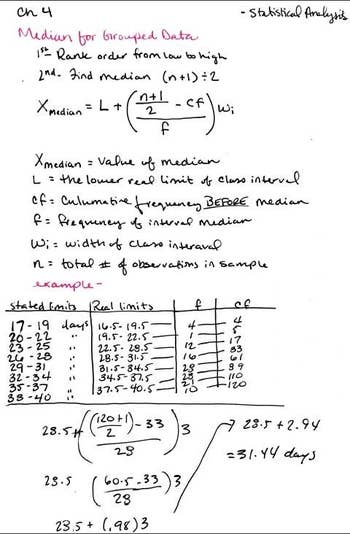 Ch 4
- Statistical Analysis
Median for Grouped Data
1st Rank order from low to high
2nd - Find median (n+1) ÷ 2
Xmedian = L + ((n+1/2 - cf)/f) Wi
Xmedian = Value of median
L = the lower real limit of class interval
cf = Culumative frequency BEFORE median
f = frequency of interval median
Wi = width of class interaval
n = total # of observations in sample
example -
Stated limits | Real limits | f | cf
17 - 19 days | 16.5 - 19.5 — 4 — 4
20 - 22 " | 19.5 - 22.5 — 1 — 5
23 - 25 " | 22.5 - 28.5 — 12 — 17
26 - 28 " | 28.5 - 31.5 — 16 — 33
29 - 31 " | 31.5 - 34.5 — 28 — 61
32 - 34 " | 34.5 - 37.5 — 89
35 - 37 " | 37.5 - 40.5 — 21 — 110
38 - 40 " | 10 — 120
28.5 + (((120+1)/2) - 33)/28) 3
28.5 (60.5 - 33/28) 3
28.5 + (.98) 3
→ 28.5 + 2.94
= 31.44 days